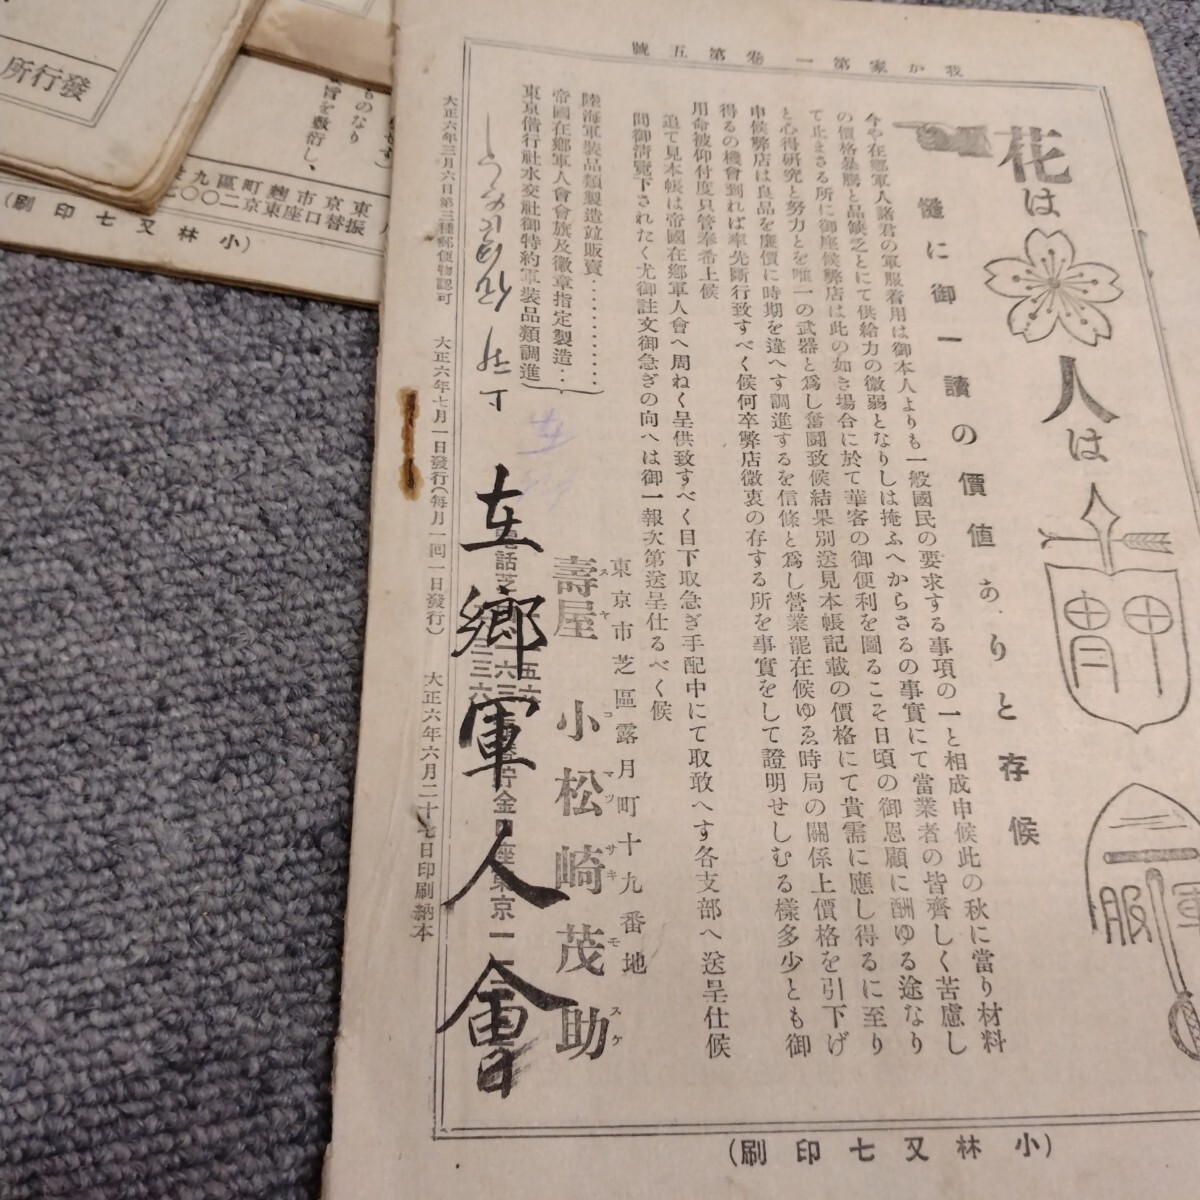 我か家第一卷第五號
花は
人は
甲
冑
軍
服
慥に御一讀の價値ありと存候
今や在鄕軍人諸君の軍服着用は御本人よりも一般國民の要求する事項の一と相成申候此の秋に當り材料
の價格暴騰と品缺乏とにて供給力の微弱となりしは掩ふへからさるの事實にて當業者の皆齊しく苦慮し
て止まさる所に御座候弊店は此の如き場合に於て華客の御便利を圖るこそ日頃の御恩顧に酬ゆる途なり
と心得研究と努力とを唯一の武器と爲し奮鬪致候結果別送見本帳記載の價格にて貴需に應し得るに至り
申候弊店は良品を廉價に時期を違へす調進するを信條と爲し營業罷在候ゆゑ時局の關係上價格を引下げ
得るの機會到れば率先斷行致すべく候何卒弊店微衷の存する所を事實をして證明せしむる樣多少とも御
用命被仰付度只管奉希上候
追て見本帳は帝國在鄕軍人會へ周ねく呈供致すべく目下取急ぎ手配中にて取敢へす各支部へ送呈仕候
間御淸覽下されたく尤御註文御急ぎの向へは御一報次第送呈仕るべく候
陸海軍裝品類製造竝販賣…………
帝國在鄕軍人會會旗及徽章指定製造…
東京偕行社水交社御特約軍裝品類調進
東京市芝區露月町十九番地
壽屋 小松崎茂助
スヤ コマツサキモスケ
在鄕軍人會
大正六年三月六日第三種郵便物認可 大正六年七月一日發行(每月一回一日發行) 大正六年六月二十七日印刷納本
(小林又七印刷)
發行所
ものなり
旨を敷衍し、
東京市麴町區九
振替口座東京二〇〇
(小林又七印刷)